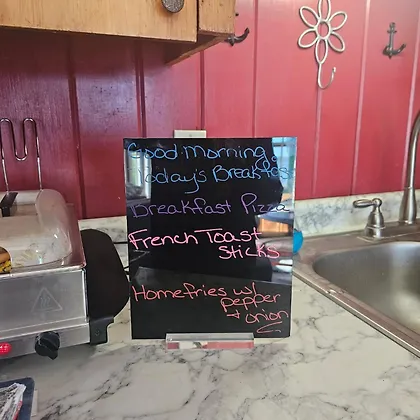 Good Morning
Today's Breakfast
Breakfast Pizza
French Toast
Sticks
Homefries w/
pepper
+ onion